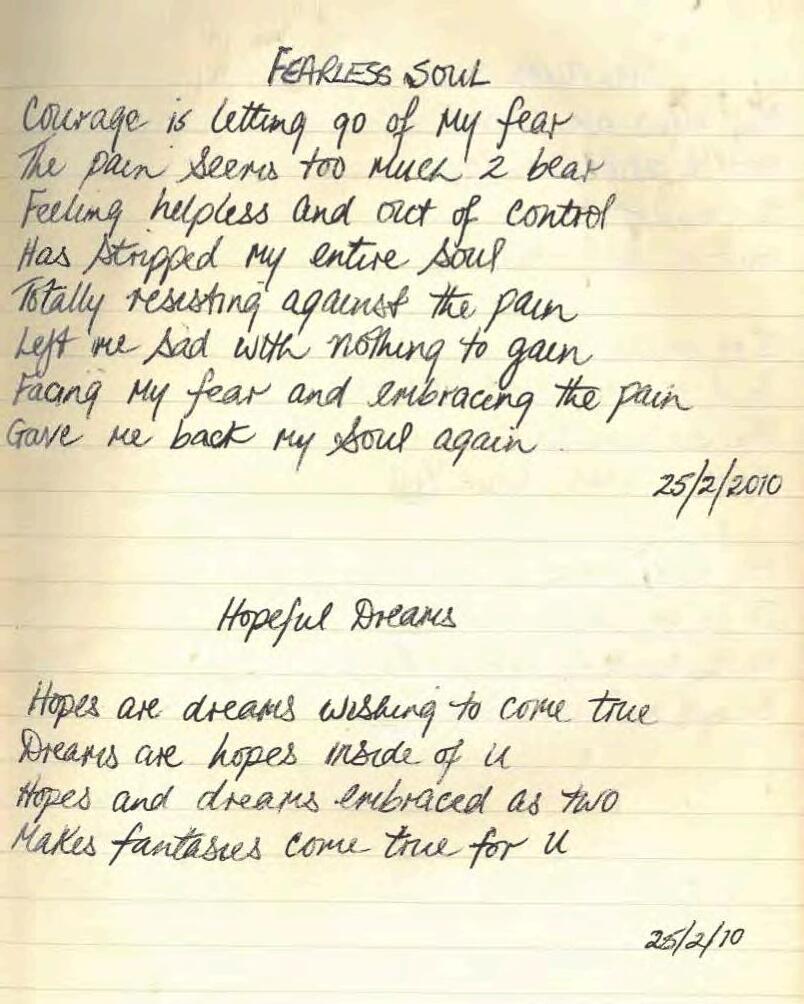 FEARLESS SOUL
Courage is letting go of my fear
The pain seems too much 2 bear
Feeling helpless and out of control
Has stripped my entire soul
Totally resisting against the pain
Left me sad with nothing to gain
Facing my fear and embracing the pain
Gave me back my soul again.
25/2/2010
Hopeful Dreams
Hopes are dreams wishing to come true
Dreams are hopes inside of u
Hopes and dreams embraced as two
Makes fantasies come true for u
25/2/10